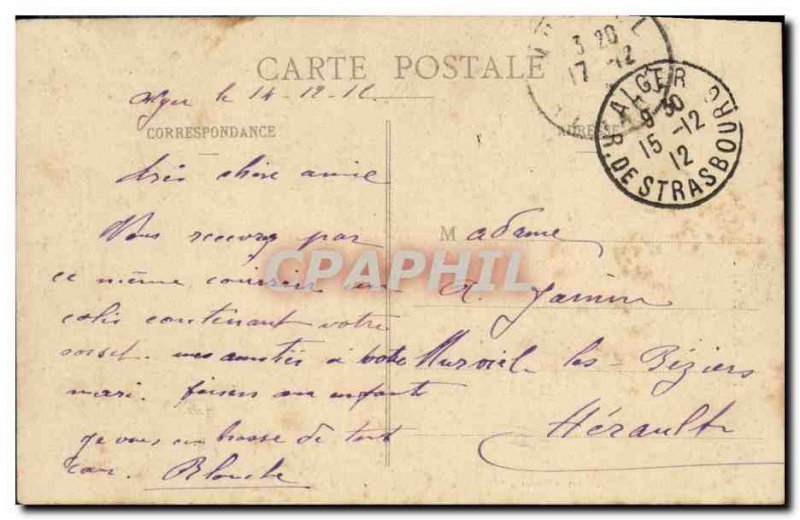 CARTE POSTALE
Alger le 14-12-12
CORRESPONDANCE
ADRESSE
très chère amie
Vous recevez par
ce même courrier un
colis contenant votre
mes amitiés à votre
mari. baisers aux enfants
je vous embrasse de tout
cœur. Blanche
Madame
A. Jamin
Murviel les Béziers
Hérault
3 20
17-12
ALGER
R. DE STRASBOURG
9 30
15-12
12
CPAPHIL